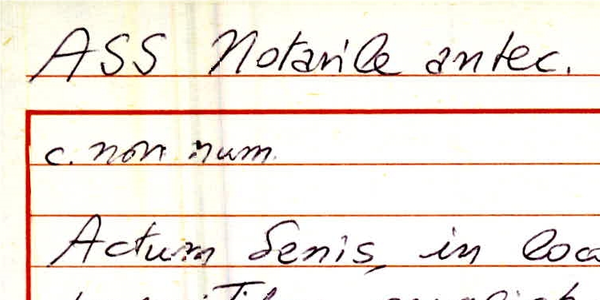 ASS Notarile antec.
c. non num.
Actum Senis, in loco